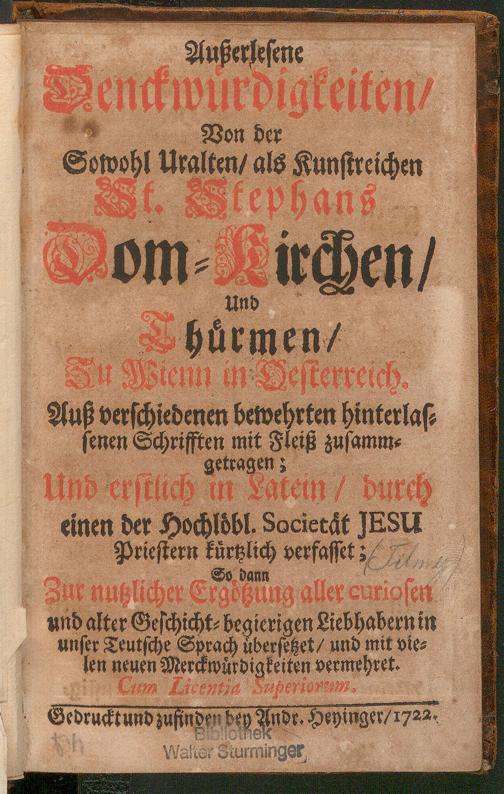 Außerlesene
Denckwürdigkeiten/
Von der
Sowohl Uralten/ als Kunstreichen
St. Stephans
Dom-Kirchen/
Und
Thürmen/
Zu Wienn in Oesterreich.
Auß verschiedenen bewehrten hinterlas-
senen Schrifften mit Fleiß zusamm-
getragen;
Und erstlich in Latein/ durch
einen der Hochlöbl. Societät JESU
Priestern kürtzlich verfasset;
So dann
Zur nutzlicher Ergötzung aller curiosen
und alter Geschicht-begierigen Liebhabern in
unser Teutsche Sprach übersetzet/ und mit vie-
len neuen Merckwürdigkeiten vermehret.
Cum Licentia Superiorum.
Gedruckt und zufinden bey Andr. Heyinger/1722.
Bibliothek
Walter Sturminger